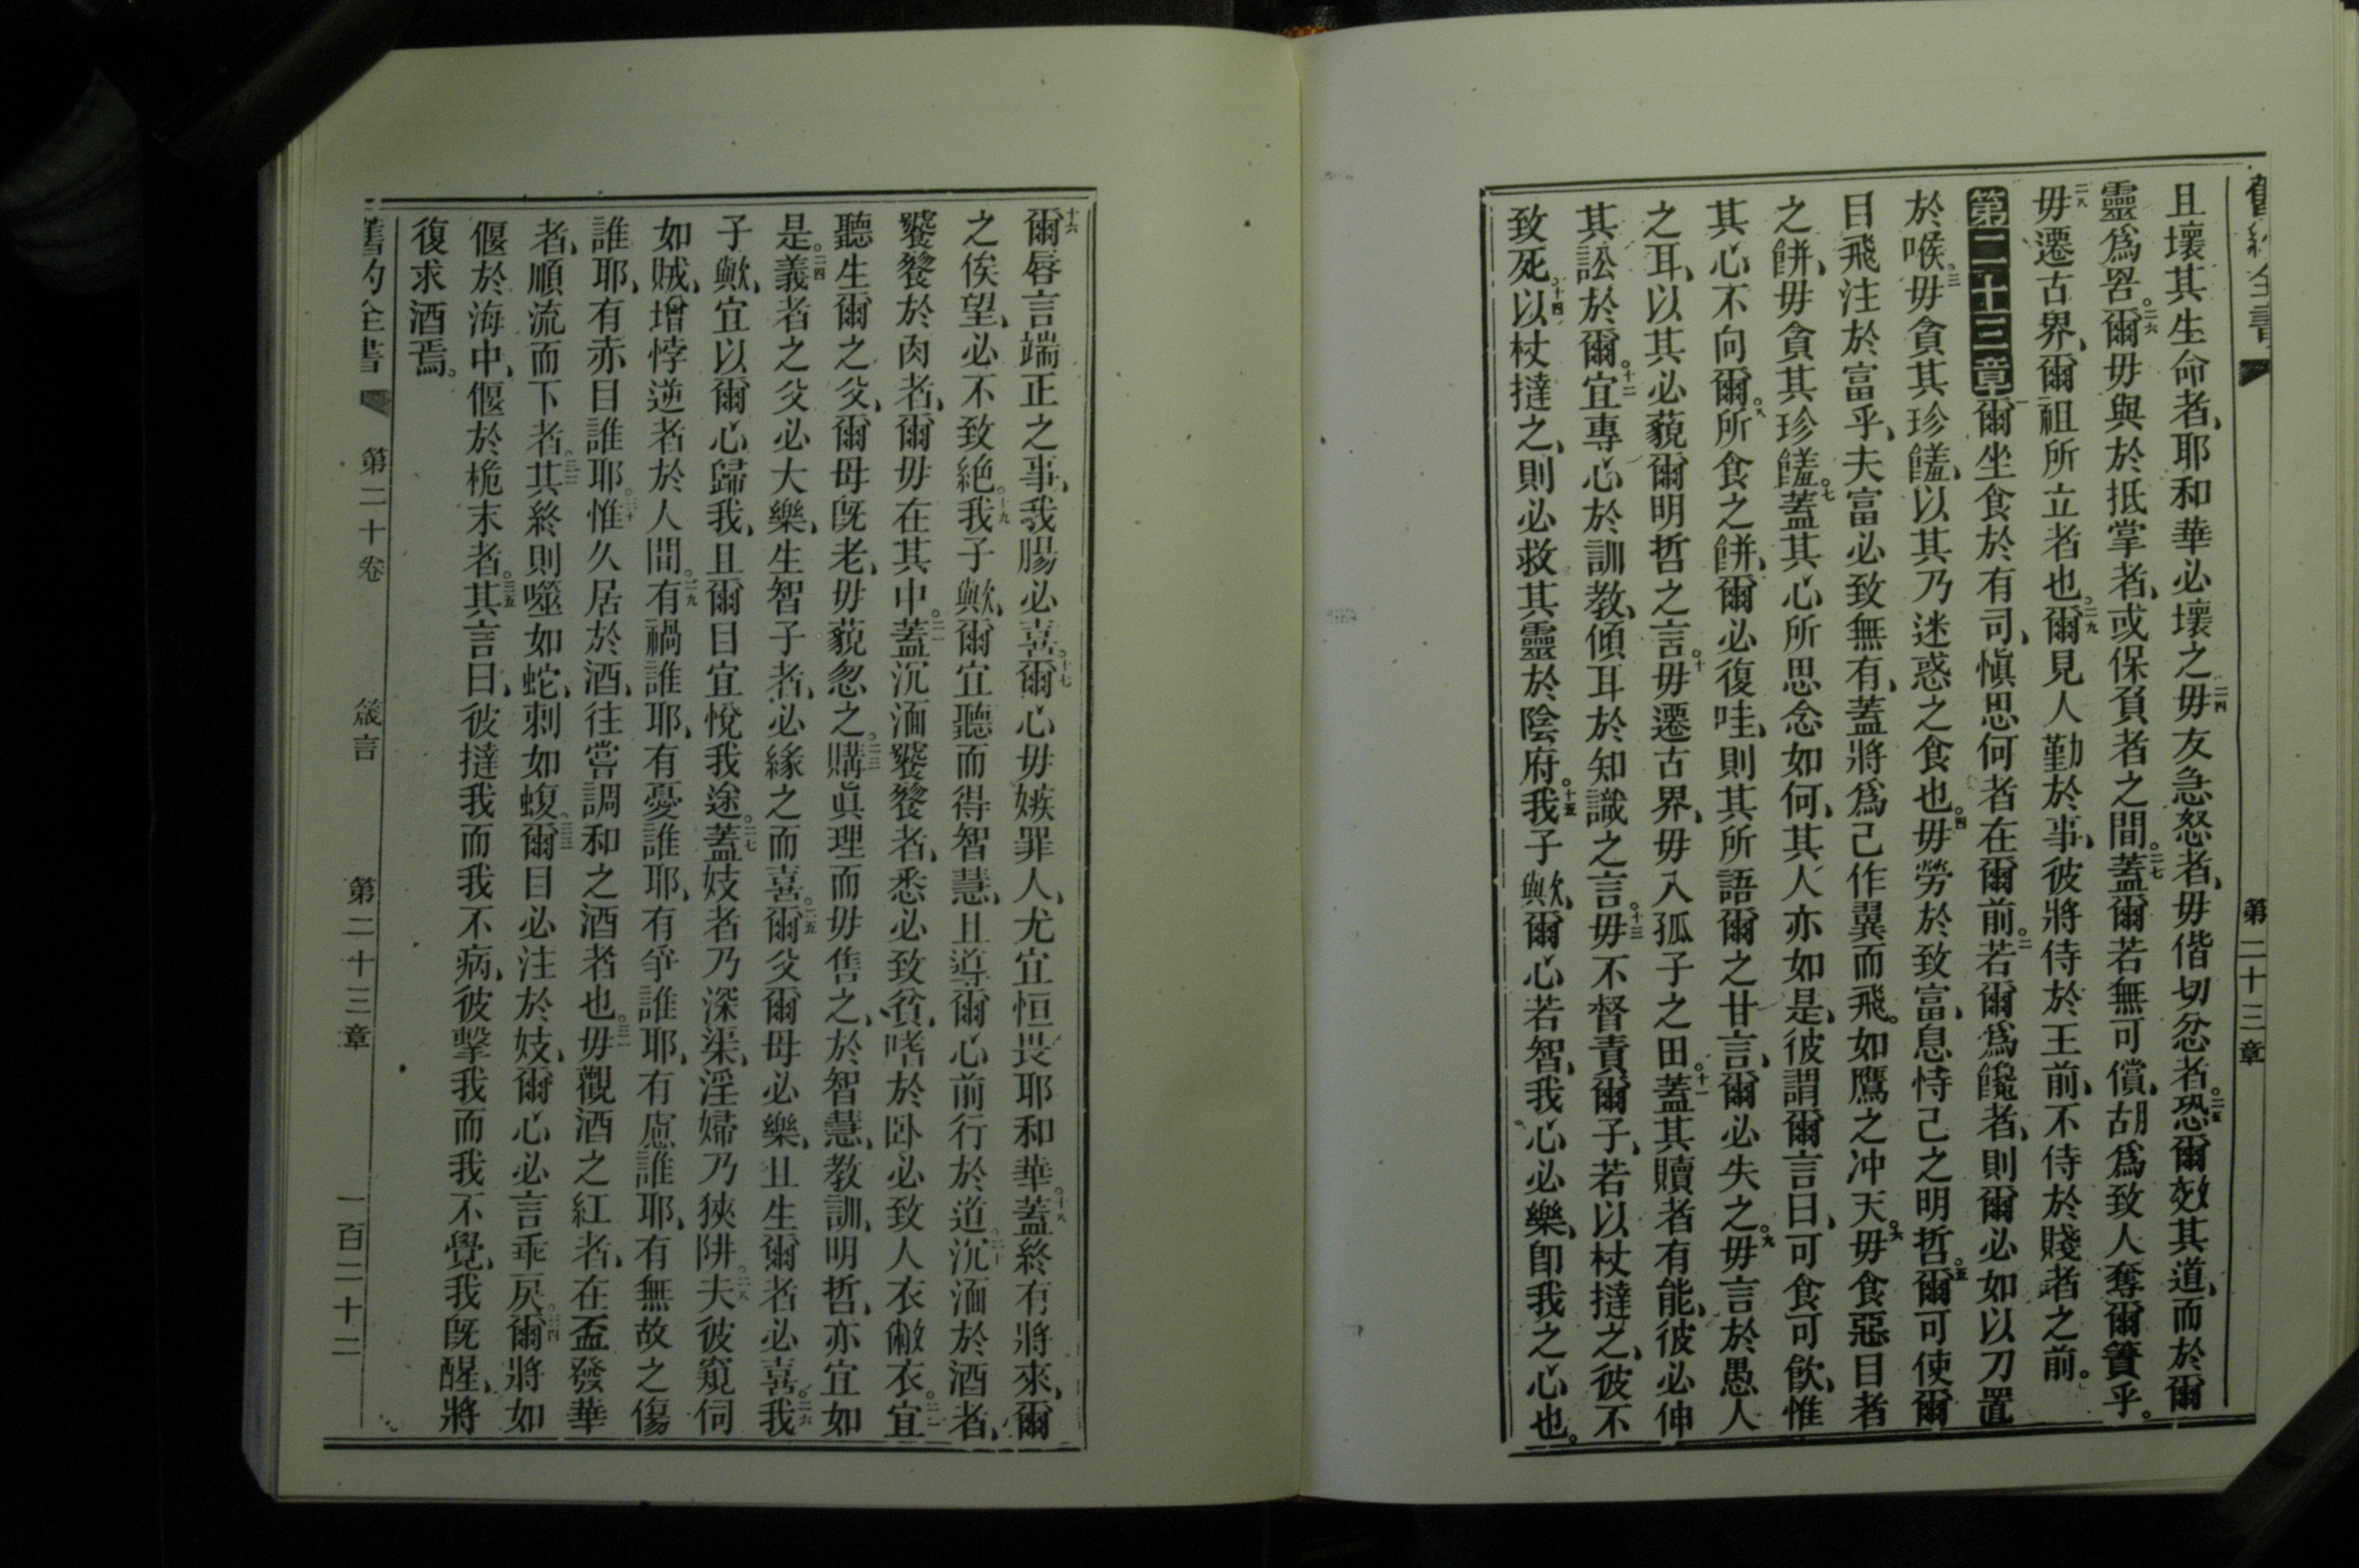 舊約全書 第二十三章
且壞其生命者、耶和華必壞之、二四毋友急怒者、毋偕切忿者。二五恐爾效其道、而於爾
靈爲罟。二六爾毋與於抵掌者、或保負者之間。二七蓋爾若無可償、胡爲致人奪爾簀乎。
二八毋遷古界、爾祖所立者也。二九爾見人勤於事、彼將侍於王前、不侍於賤者之前。
第二十三章 一爾坐食於有司、愼思何者在爾前。二若爾爲饞者、則爾必如以刀置
於喉。三毋貪其珍饈、以其乃迷惑之食也。四毋勞於致富、息恃己之明哲。五爾可使爾
目飛注於富乎、夫富必致無有、蓋將爲己作翼而飛。如鷹之冲天。六毋食惡目者
之餅、毋貪其珍饈。七蓋其心所思念如何、其人亦如是、彼謂爾言曰、可食可飲、惟
其心不向爾。八所食之餅、爾必復哇、則其所語爾之甘言、爾必失之。九毋言於愚人
之耳、以其必藐爾明哲之言。十毋遷古界、毋入孤子之田。十一蓋其贖者有能、彼必伸
其訟於爾。十二宜專心於訓教、傾耳於知識之言。十三毋不督責爾子、若以杖撻之、彼不
致死。十四以杖撻之、則必救其靈於陰府。十五我子歟、爾心若智、我心必樂、卽我之心也。
十六爾唇言端正之事、我腸必喜。十七爾心毋嫉罪人、尤宜恒畏耶和華。十八蓋終有將來、爾
之俟望、必不致絶。十九我子歟、爾宜聽而得智慧、且導爾心前行於道。二十沉湎於酒者、
饕餮於肉者、爾毋在其中。二一蓋沉湎饕餮者、悉必致貧、嗜於卧必致人衣敝衣。二二宜
聽生爾之父、爾母旣老、毋藐忽之。二三購眞理而毋售之、於智慧、教訓、明哲、亦宜如
是。二四義者之父必大樂、生智子者、必緣之而喜。二五爾父爾母必樂、且生爾者必喜。二六我
子歟、宜以爾心歸我、且爾目宜悅我途。二七蓋妓者乃深渠、淫婦乃狹阱。二八夫彼窺伺
如賊、增悖逆者於人間。二九有禍誰耶、有憂誰耶、有爭誰耶、有慮誰耶、有無故之傷
誰耶、有赤目誰耶。三十惟久居於酒、往嘗調和之酒者也。三一毋觀酒之紅者、在盃發華
者、順流而下者。三二其終則噬如蛇、刺如蝮。三三爾目必注於妓、爾心必言乖戾。三四爾將如
偃於海中、偃於桅末者。三五其言曰、彼撻我而我不病、彼擊我而我不覺、我旣醒、將
復求酒焉。
舊約全書 第二十卷 箴言 第二十三章 一百二十二